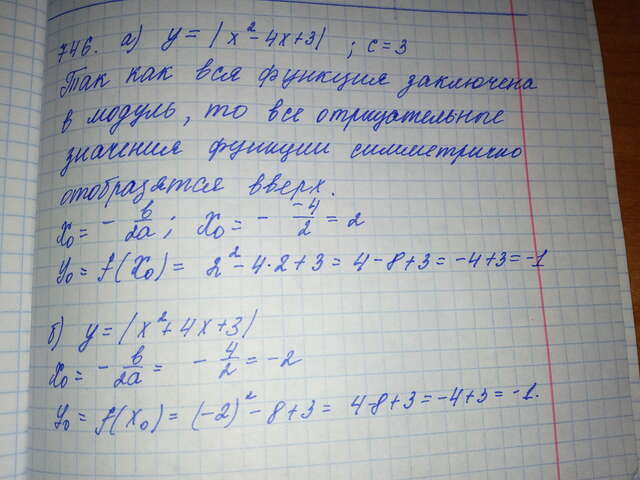 746. а) y = |x² - 4x + 3| ; c = 3
Так как вся функция заключена
в модуль, то все отрицательные
значения функции симметрично
отобразятся вверх.
x₀ = - b/2a ; x₀ = - -4/2 = 2
y₀ = f(x₀) = 2² - 4·2 + 3 = 4 - 8 + 3 = -4 + 3 = -1
б) y = |x² + 4x + 3|
x₀ = - b/2a = - 4/2 = -2
y₀ = f(x₀) = (-2)² - 8 + 3 = 4-8+3 = -4+3 = -1.